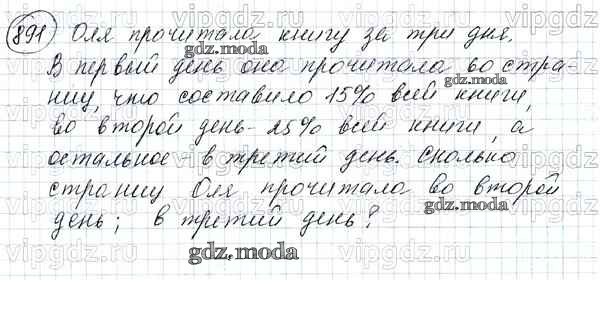 891 Оля прочитала книгу за три дня.
gdz.moda
В первый день она прочитала 60 стра-
gdz.moda
ниц, что составило 15% всей книги,
во второй день - 25% всей книги, а
остальное - в третий день. Сколько
страниц Оля прочитала во второй
gdz.moda
день; в третий день?
gdz.moda